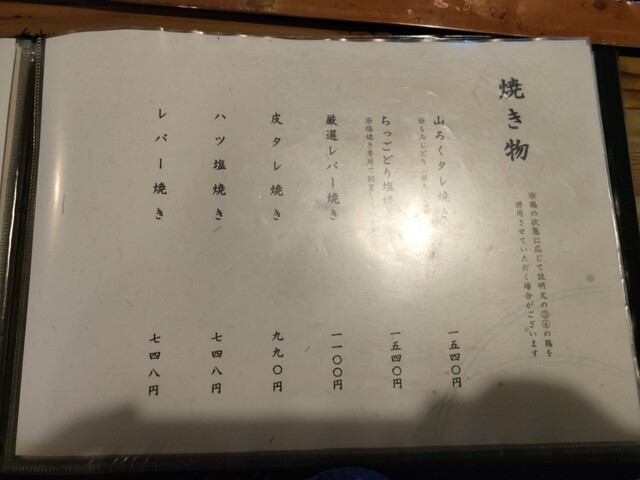 焼き物
※鶏の状態に応じて説明文の③④の鶏を
併用させていただく場合がございます
山ろくタレ焼き
一五四〇円
ちっごどり塩焼
※塩焼き専用で
一五四〇円
厳選レバー焼き
一一〇〇円
皮タレ焼き
九九〇円
ハツ塩焼き
七四八円
レバー焼き
七四八円